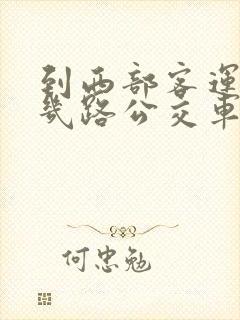 到西部客運
幾路公交車
何忠勉